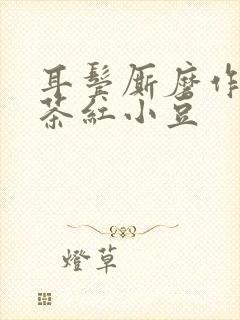 耳鬓厮磨作
茶红小豆
燈草